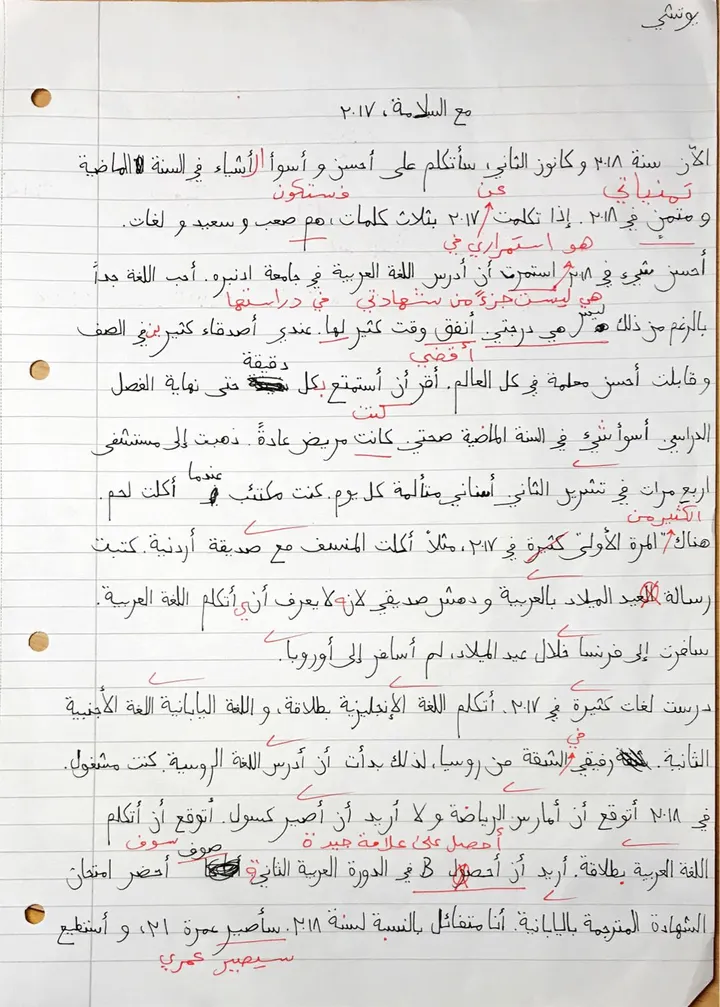 يوتشي
مع السلامة، ٢٠١٧
الآن سنة ٢٠١٨ و كانون الثاني، سأتكلم على أحسن و أسوأ الأشياء في السنة الماضية
تمنياتي عن فستكون
و متمنٍ في ٢٠١٨. إذا تكلمت ٢٠١٧ بثلاث كلمات، هم صعب و سعيد و لغات.
هو استمراري في
أحسن شيء في ٢٠١٨ استمرت أن أدرس اللغة العربية في جامعة ادنبره. أحب اللغة جداً
هي ليست جزءً من شهادتي في دراستها
بالرغم من ذلك ليس هي درجتي. أنفق وقت كثير لها. عندي أصدقاء كثيرين في الصف
أقضي دقيقة
و قابلت أحسن معلمة في كل العالم. أقر أن أستمتع بكل حتى نهاية الفصل
كنت
الدراسي. أسوأ شيء في السنة الماضية صحتي. كانت مريض عادةً. ذهبت إلى مستشفى
عندما
اربع مرات في تشرين الثاني. أسناني متألمة كل يوم. كنت مكتئب أكلت لحم.
الكثير من
هناك المرة الأولى كثيرة في ٢٠١٧، مثلاً أكلت المنسف مع صديقة أردنية. كتبت
رسالة العيد الميلاد بالعربية و دهش صديقي لانه لا يعرف أني أتكلم اللغة العربية.
سافرت إلى فرنسا خلال عيد الميلاد، لم أسافر إلى أوروبا.
درست لغات كثيرة في ٢٠١٧. أتكلم اللغة الإنجليزية بطلاقة، و اللغة اليابانية اللغة الأجنبية
في
الثانية. رفيقي الشقة من روسيا، لذلك بدأت أن أدرس اللغة الروسية. كنت مشغول.
في ٢٠١٨ أتوقع أن أمارس الرياضة و لا أريد أن أصير كسول. أتوقع أن أتكلم
أحصل على علامة جيدة صوف سوف
اللغة العربية بطلاقة. أريد أن أحصل B في الدورة العربية الثانية أحضر امتحان
الشهادة المترجمة باليابانية. أنا متفائل بالنسبة لسنة ٢٠١٨. سأصير عمرة ٢١، و أستطيع
سيصبر عمري